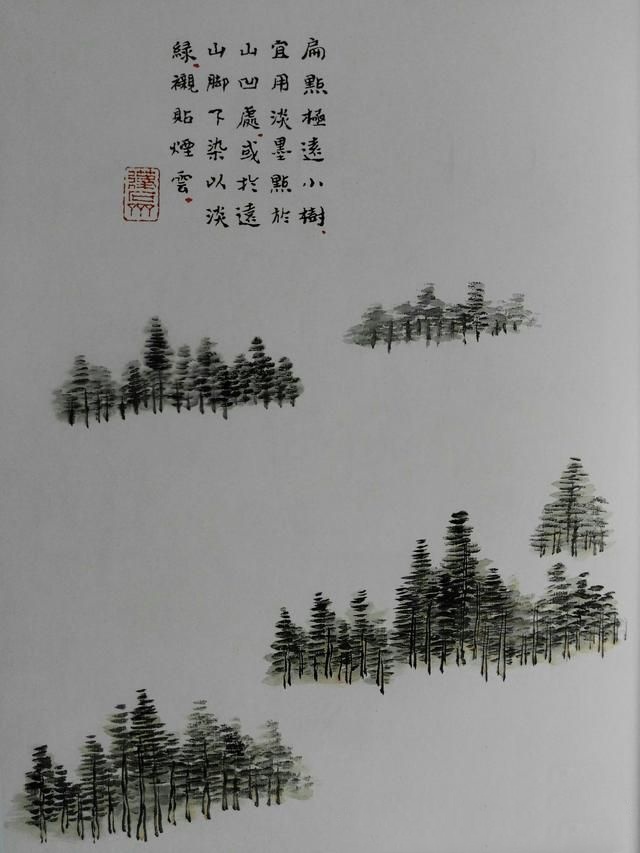 扁點極遠小樹
宜用淡墨點於
山凹處或於遠
山脚下染以淡
綠襯貼煙雲